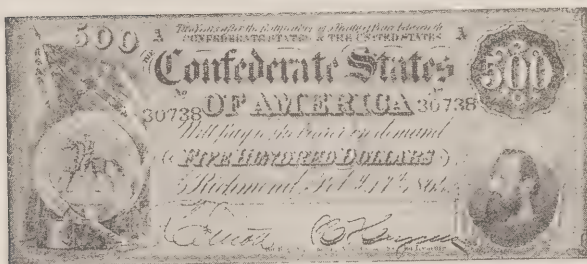 500 A Two Years after the Ratification of a Treaty of Peace between the A
CONFEDERATE STATES & THE UNITED STATES
THE
Confederate States 500
No No
30738 OF AMERICA 30738
Will pay to the bearer on demand
FIVE HUNDRED DOLLARS
Richmond Feb. 17th 1864